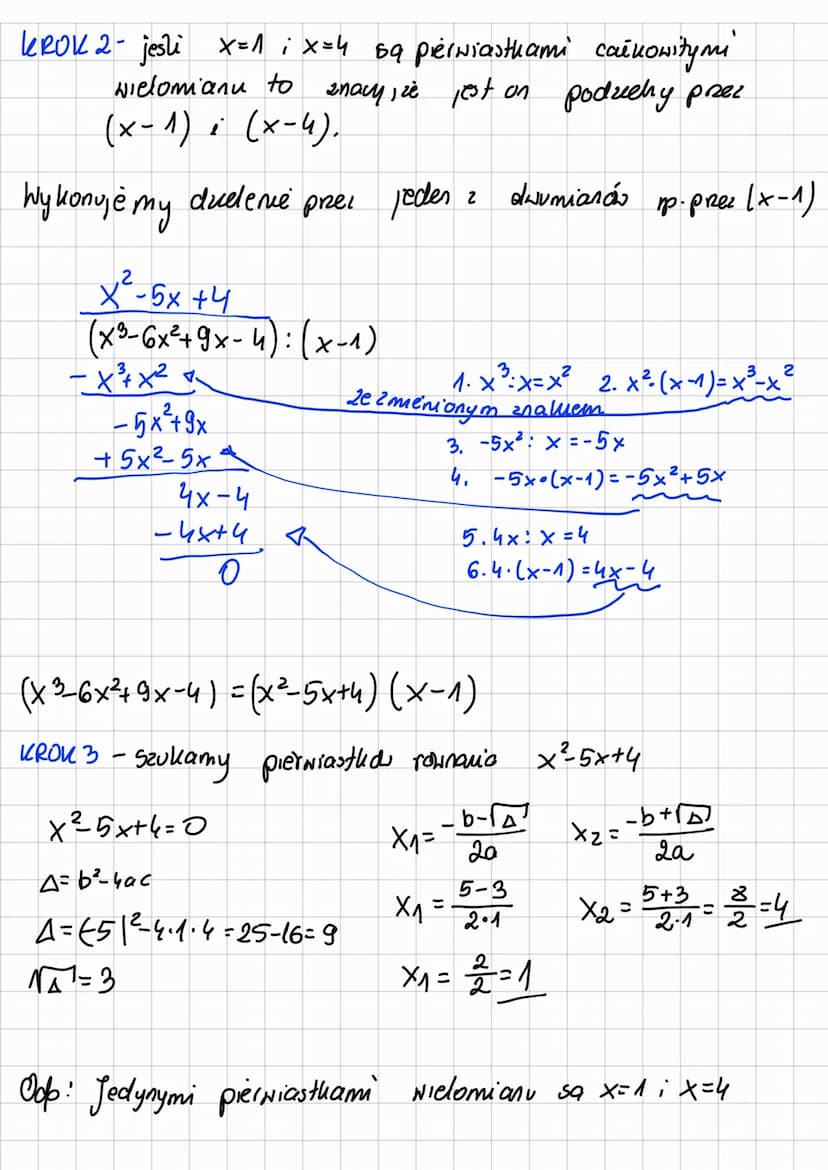 KROK 2 - jeśli x=1 i x=4 są pierwiastkami całkowitymi
wielomianu to znaczy, że jest on podzielny przez
(x-1) i (x-4).
Wykonujemy dzielenie przez jeden z dwumianów np. przez (x-1)
x²-5x+4
(x³-6x²+9x-4):(x-1)
-x³+x² 1. x³:x=x² 2. x²·(x-1)=x³-x²
ze zmienionym znakiem
-5x²+9x 3. -5x²:x=-5x
+5x²-5x 4. -5x·(x-1)=-5x²+5x
4x-4
-4x+4 5. 4x:x=4
0 6. 4·(x-1)=4x-4
(x³-6x²+9x-4)=(x²-5x+4)(x-1)
KROK 3 - szukamy pierwiastków równania x²-5x+4
x²-5x+4=0 x₁=\frac{-b-√Δ}{2a} x₂=\frac{-b+√Δ}{2a}
Δ=b²-4ac x₁=\frac{5-3}{2·1} x₂=\frac{5+3}{2·1}=\frac{8}{2}=4
Δ=(-5)²-4·1·4=25-16=9
√Δ=3 x₁=\frac{2}{2}=1
Odp: Jedynymi pierwiastkami wielomianu są x=1 i x=4